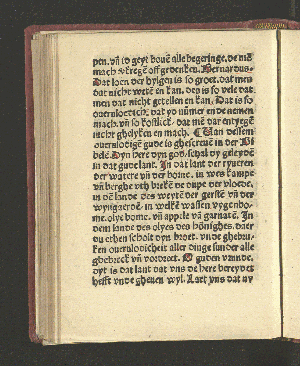 pen. vñ io geyt bouẽ alle begeringe. de mẽ
mach vkregẽ off gedencken. Bernardus.
Dat loen der hylgen is so groet. dat men
dat nicht wetẽ en kan. des is so vele dat
men dat nicht getellen en kan. Dat is so
ouerulodich. dat yd nũmer en de nemen
mach. vñ so kostlick. dat mẽ dat entyegẽ
nicht ghelyken en mach. Van dessem
ouerulodigẽ gude is ghescreuẽ in der Bi
bele. Dyn here dyn god. schal dy geleydẽ
in dat gude lant. In dat lant der ryueren
der watere vñ der borne. in wes kampe
vñ berghe vth brekẽ de vlode.
in dẽ lande des weytẽ der gerstẽ vñ der
wyngardẽ. in welkẽ wassen vygenbo
me. olye bome. vñ appele vñ garnatẽ. In
dem lande des olyes des hõnighes. daer
du ethen schalt dyn broet. vnde ghebru
ken ouerulodicheit aller dinge sunder alle
ghebreck vñ vordreet. O guden vrunde.
dyt is dat lant dat vns de here bereydet
hefft vnde gheuen wyl. Laet vns dat ny